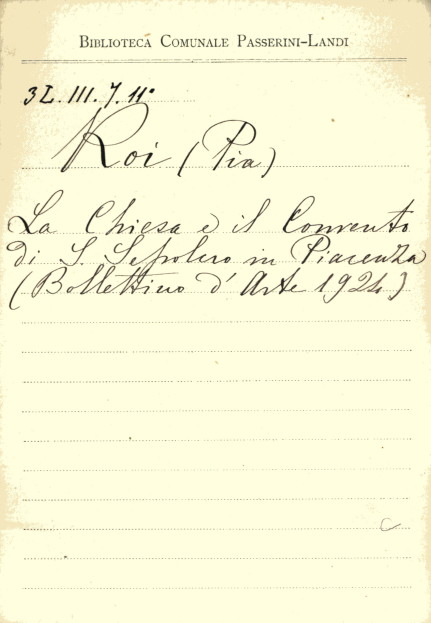 BIBLIOTECA COMUNALE PASSERINI-LANDI
3L.III.7.11º
Roi (Pia)
La Chiesa e il Convento
di S. Sepolcro in Piacenza
(Bollettino d'Arte 1924)